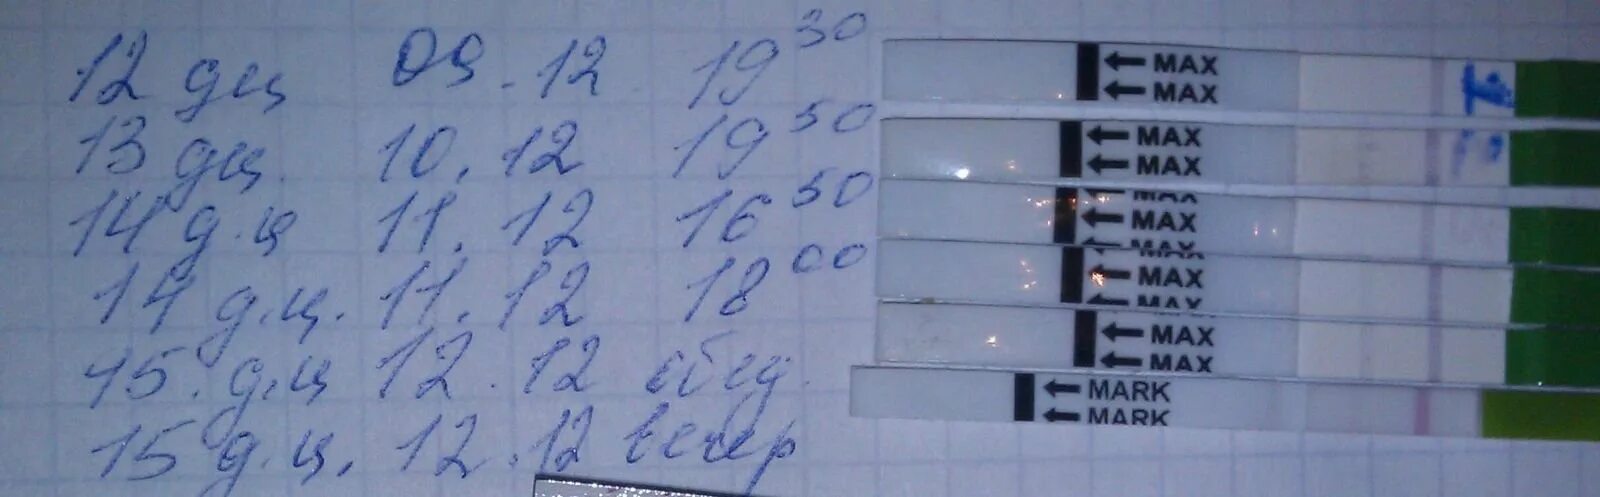 12 дц 09.12 19 30
MAX
MAX
13 дц. 10.12 19 50
MAX
MAX
14 д.ц 11.12 16 50
MAX
MAX
MAX
14 д.ц. 11.12 18 00
MAX
MAX
15. д.ц 12.12 обед.
MAX
MAX
15 д.ц. 12.12 вечер
MARK
MARK